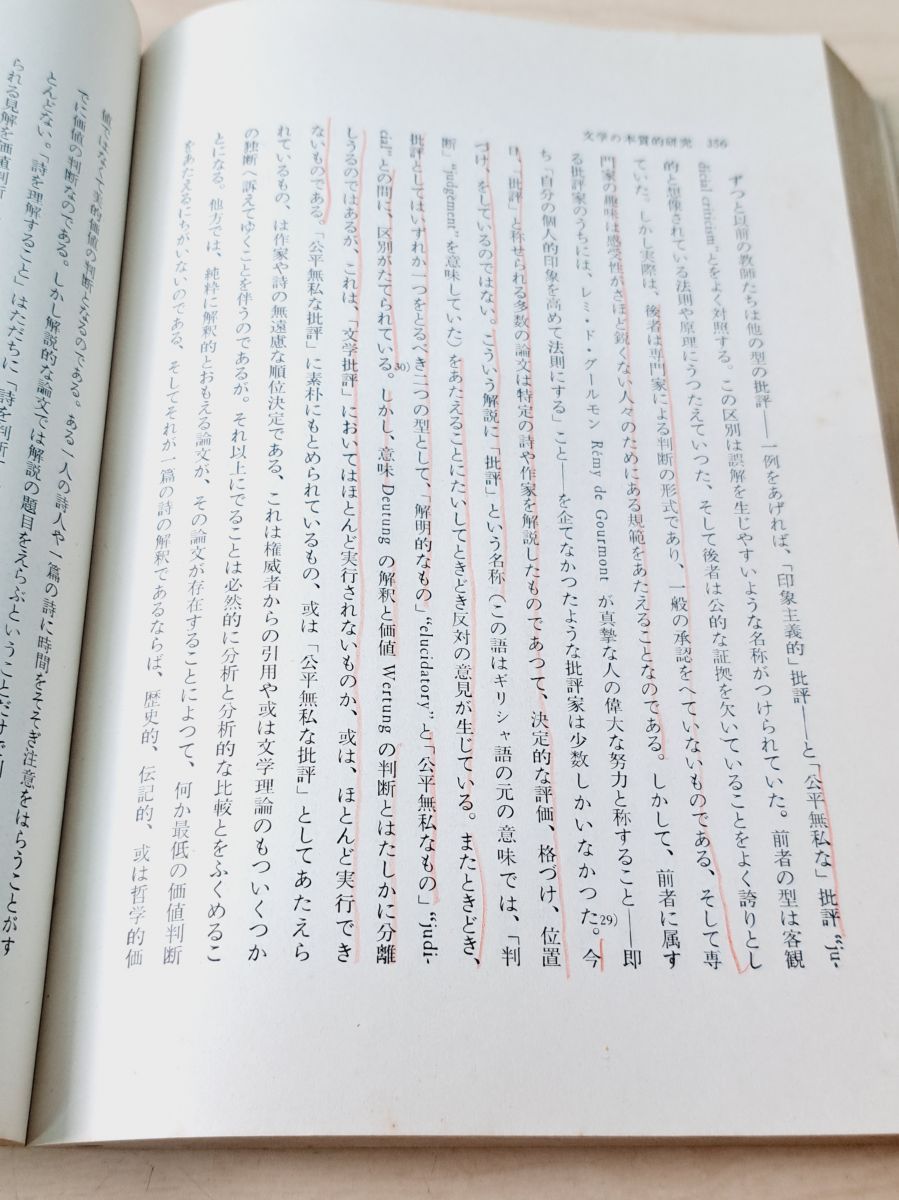 文学の本質的研究 356
ずつと以前の教師たちは他の型の批評——一例をあげれば、「印象主義的」批評——と「公平無私な」批評“ju-
dicial criticism”とをよく対照する。この区別は誤解を生じやすいような名称がつけられていた。前者の型は客観
的と想像されている法則や原理にうつたえていつた、そして後者は公的な証拠を欠いていることをよく誇りとし
ていた。しかし実際は、後者は専門家による判断の形式であり、一般の承認をへていないものである、そして専
門家の趣味は感受性がさほど鋭くない人々のためにある規範をあたえることなのである。しかして、前者に属す
る批評家のうちには、レミ・ド・グールモン Rémy de Gourmont が真摯な人の偉大な努力と称すること——即
ち、「自分の個人的印象を高めて法則にする」こと——を企てなかつたような批評家は少数しかいなかつた。29)今
日、「批評」と称せられる多数の論文は特定の詩や作家を解説したものであつて、決定的な評価、格づけ、位置
づけ、をしているのではない。こういう解説に「批評」という名称(この語はギリシャ語の元の意味では、「判
断」“judgement”を意味していた)をあたえることにたいしてときどき反対の意見が生じている。またときどき、
批評としてはいずれか一つをとるべき二つの型として、「解明的なもの」“elucidatory”と「公平無私なもの」“judi-
cial”との間に、区別がたてられている。30)しかし、意味 Deutung の解釈と価値 Wertung の判断とはたしかに分離
しうるのではあるが、これは、「文学批評」においてはほとんど実行されないものか、或は、ほとんど実行でき
ないものである。「公平無私な批評」に素朴にもとめられているもの、或は「公平無私な批評」としてあたえら
れているもの、は作家や詩の無遠慮な順位決定である、これは権威者からの引用や或は文学理論のもついくつか
の独断へ訴えてゆくことを伴うのであるが。それ以上にでることは必然的に分析と分析的な比較とをふくめるこ
とになる。他方では、純粋に解釈的とおもえる論文が、その論文が存在することによつて、何か最低の価値判断
をあたえるにちがいないのである、そしてそれが一篇の詩の解釈であるならば、歴史的、伝記的、或は哲学的価
値ではなくて美的価値の判断となるのである。ある一人の詩人や一篇の詩に時間をそそぎ注意をはらうことがす
でに価値の判断なのである。しかし解説的な論文では解説の題目をえらぶということだけで判
とんどない。「詩を理解すること」はただちに「詩を判断
られる見解を価値判断